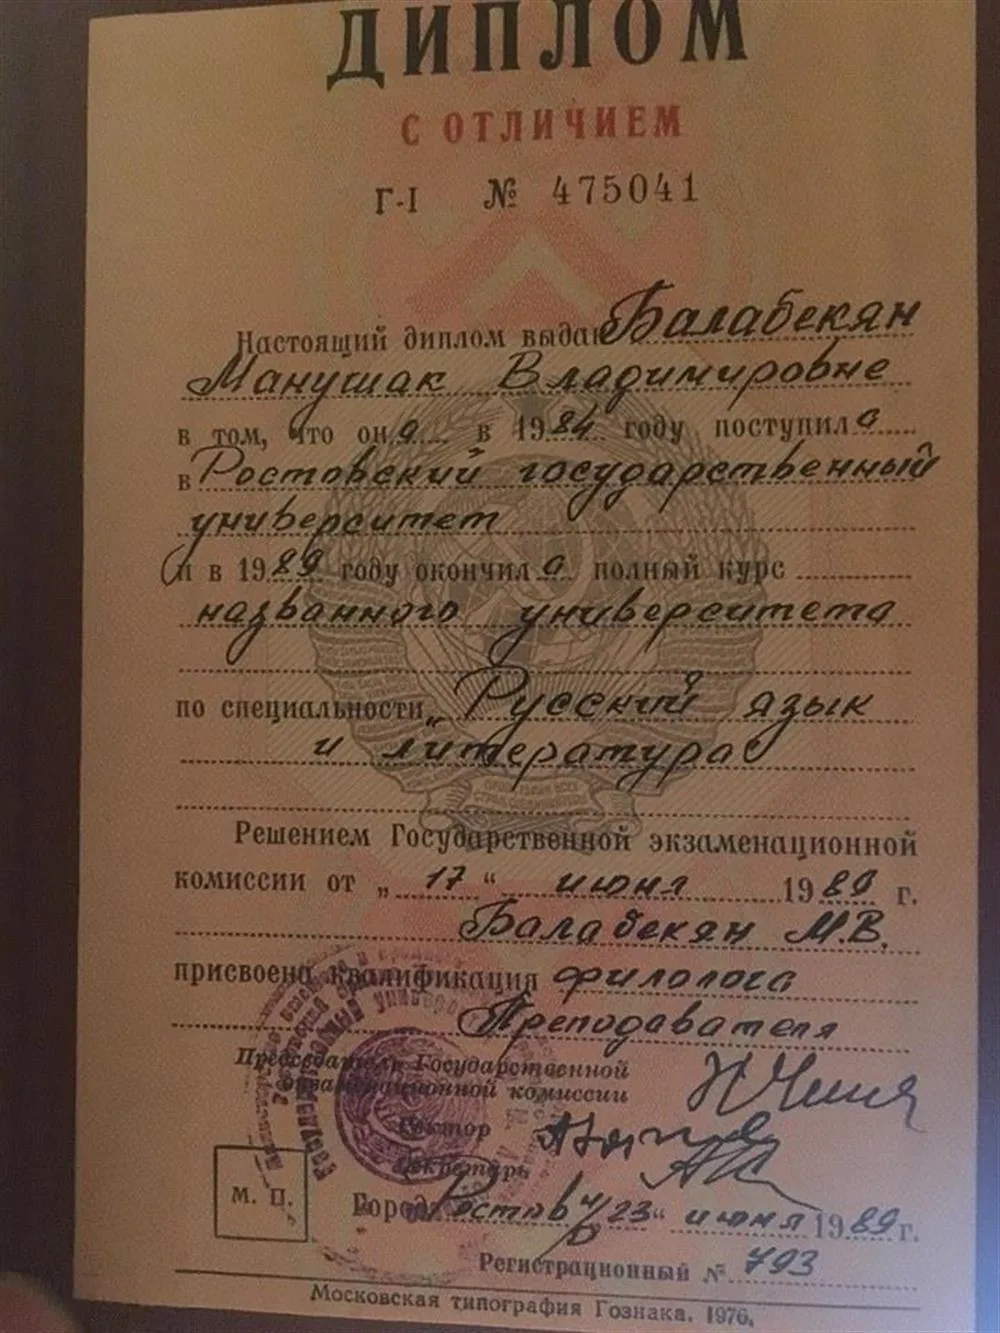 ДИПЛОМ
С ОТЛИЧИЕМ
Г-I № 475041
Настоящий диплом выдан Балабекян
Манушак Владимировне
в том, что он а в 1984 году поступил а
в Ростовский государственный
университет
и в 1989 году окончил а полный курс
названного университета
по специальности „Русский язык
и литература
Решением Государственной экзаменационной
комиссии от „17“ июня 1989 г.
Балабекян М.В.
присвоена квалификация филолога
Преподавателя
Председатель Государственной
экзаменационной комиссии
Ректор
Секретарь
М. П.
Город Ростов н/Д 23“ июня 1989 г.
Регистрационный № 793
Московская типография Гознака. 1976.